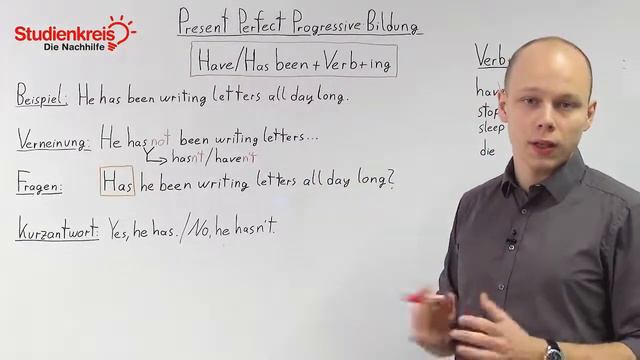 Studienkreis
Die Nachhilfe
Present Perfect Progressive Bildung
Have/Has been + Verb + ing
Beispiel: He has been writing letters all day long.
Verneinung: He has not been writing letters...
hasn't/haven't
Fragen: Has he been writing letters all day long?
Kurzantwort: Yes, he has. / No, he hasn't.
stop
sleep
die